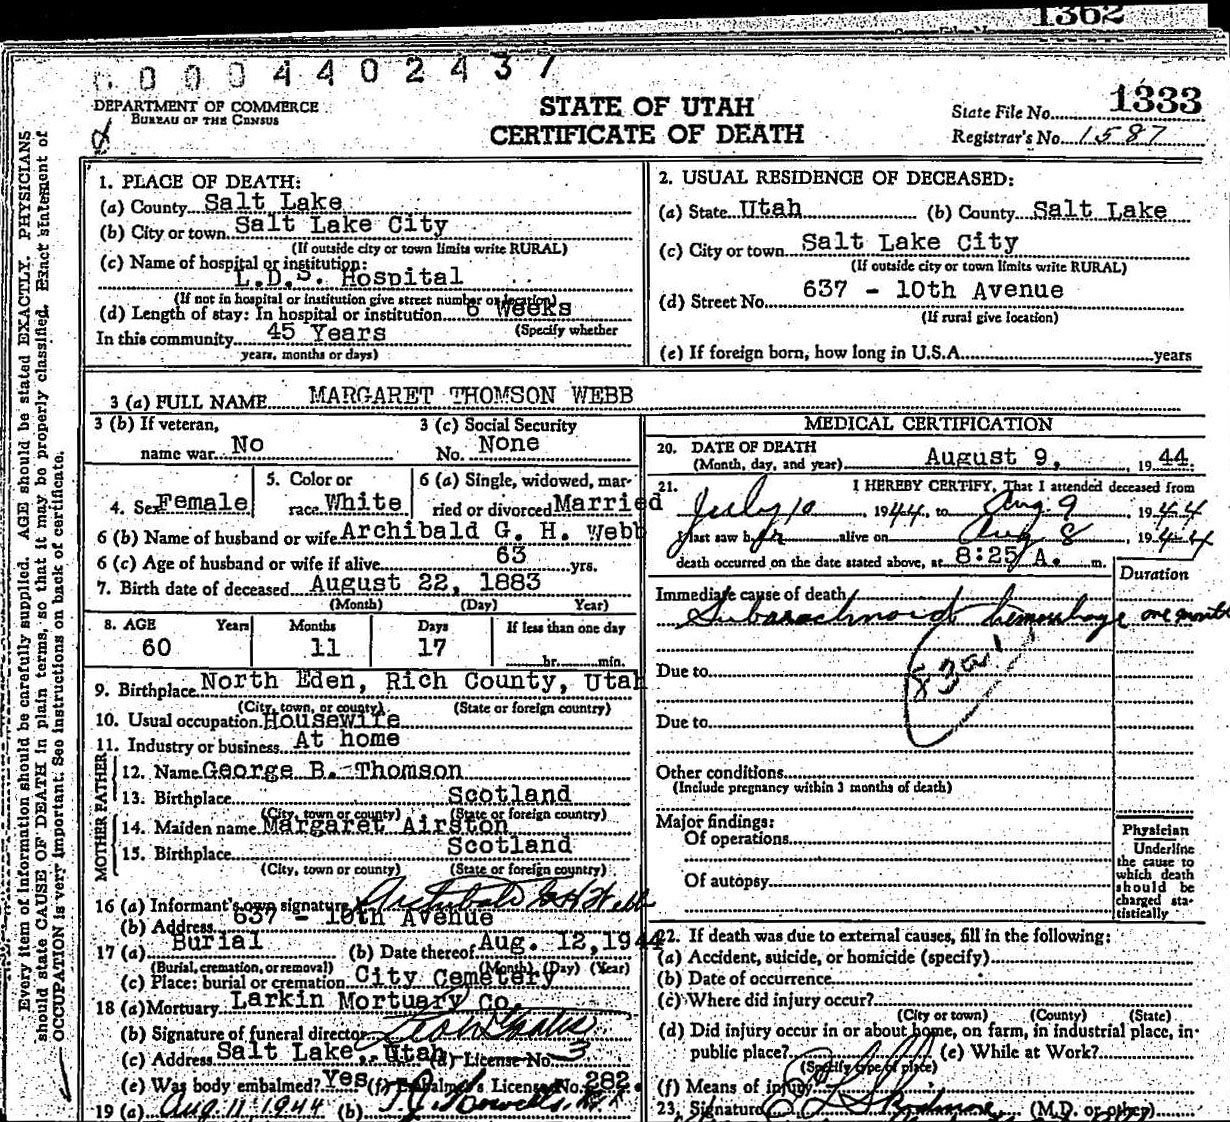 1362
0 0 0 4 4 0 2 4 3 7
DEPARTMENT OF COMMERCE
BUREAU OF THE CENSUS
STATE OF UTAH
CERTIFICATE OF DEATH
State File No. 1333
Registrar's No. 1587
Every item of information should be carefully supplied. AGE should be stated EXACTLY. PHYSICIANS
should state CAUSE OF DEATH in plain terms, so that it may be properly classified. Exact statement of
OCCUPATION is very important. See instructions on back of certificate.
1. PLACE OF DEATH:
(a) County Salt Lake
(b) City or town Salt Lake City
(If outside city or town limits write RURAL)
(c) Name of hospital or institution:
L.D.S. Hospital
(If not in hospital or institution give street number or location)
(d) Length of stay: In hospital or institution 6 Weeks
(Specify whether
In this community 45 Years
years, months or days)
2. USUAL RESIDENCE OF DECEASED:
(a) State Utah (b) County Salt Lake
(c) City or town Salt Lake City
(If outside city or town limits write RURAL)
(d) Street No. 637 - 10th Avenue
(If rural give location)
(e) If foreign born, how long in U.S.A. years
3 (a) FULL NAME MARGARET THOMSON WEBB
3 (b) If veteran,
name war No
3 (c) Social Security
No. None
4. Sex Female
5. Color or
race White
6 (a) Single, widowed, mar-
ried or divorced Married
6 (b) Name of husband or wife Archibald G. H. Webb
6 (c) Age of husband or wife if alive 63 yrs.
7. Birth date of deceased August 22, 1883
(Month) (Day) Year)
8. AGE Years Months Days If less than one day
60 11 17 hr. min.
9. Birthplace North Eden, Rich County, Utah
(City, town, or county) (State or foreign country)
10. Usual occupation Housewife
11. Industry or business At home
FATHER
12. Name George B. Thomson
13. Birthplace Scotland
(City, town or county) (State or foreign country)
MOTHER
14. Maiden name Margaret Airston
15. Birthplace Scotland
(City, town or county) (State or foreign country)
16 (a) Informant's own signature Archibald G H Webb
(b) Address 637 - 10th Avenue
17 (a) Burial (b) Date thereof Aug. 12, 1944
(Burial, cremation, or removal) (Month) (Day) (Year)
(c) Place: burial or cremation City Cemetery
18 (a) Mortuary Larkin Mortuary Co.
(b) Signature of funeral director
(c) Address Salt Lake, Utah (d) License No. 3
(e) Was body embalmed? Yes (f) Embalmer's License No. 282
19 (a) Aug. 11-1944 (b)
MEDICAL CERTIFICATION
20. DATE OF DEATH
(Month, day, and year) August 9, 1944
21. I HEREBY CERTIFY, That I attended deceased from
July 10, 1944, to Aug 9 1944
I last saw her alive on Aug 8, 1944
death occurred on the date stated above, at 8:25 A. m.
Duration
Immediate cause of death
Subarachnoid hemorrhage one month
83a1
Due to
Due to
Other conditions
(Include pregnancy within 3 months of death)
Major findings:
Of operations
Of autopsy
Physician
Underline
the cause to
which death
should be
charged sta-
tistically
22. If death was due to external causes, fill in the following:
(a) Accident, suicide, or homicide (specify)
(b) Date of occurrence
(c) Where did injury occur?
(City or town) (County) (State)
(d) Did injury occur in or about home, on farm, in industrial place, in
public place? (e) While at Work?
(Specify type of place)
(f) Means of injury
23. Signature (M.D. or other)